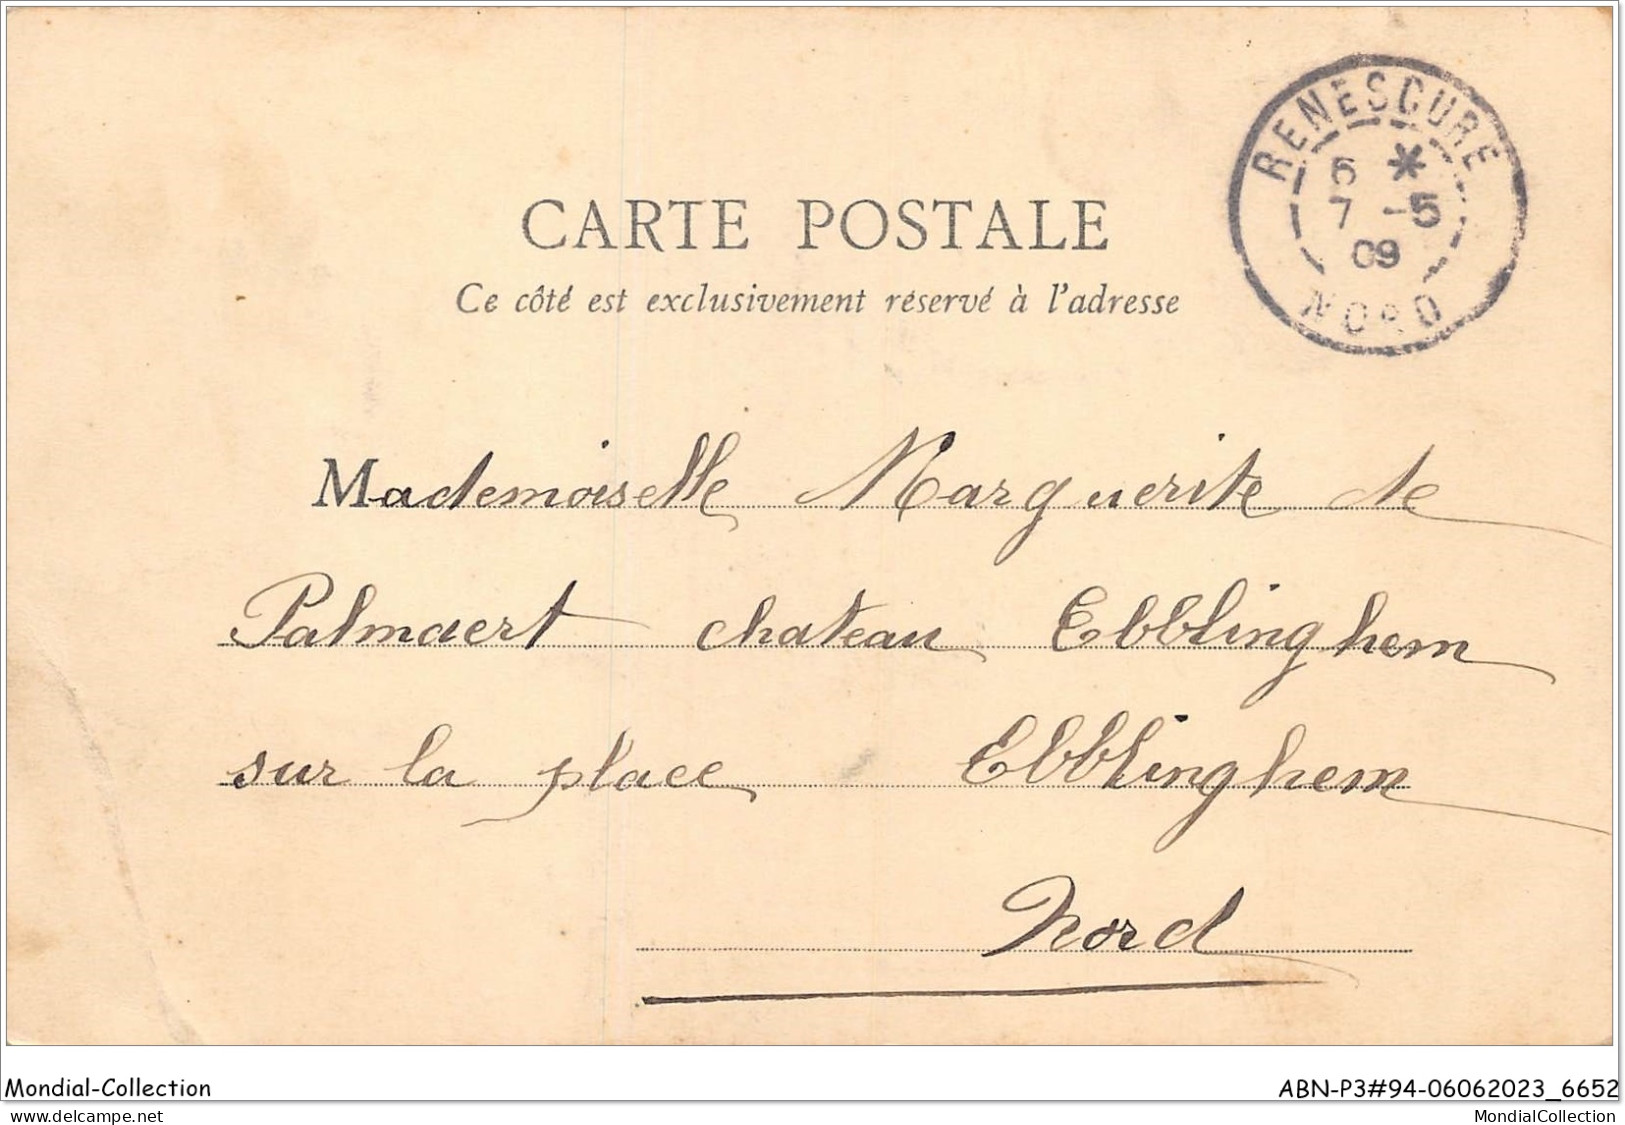 RENESCURE
6 *
7 -5
09
NORD
CARTE POSTALE
Ce côté est exclusivement réservé à l'adresse
Mademoiselle Marguerite de
Palmaert chateau Ebblinghem
sur la place Ebblinghem
Nord
Mondial-Collection
ABN-P3#94-06062023_6652
www.delcampe.net
MondialCollection